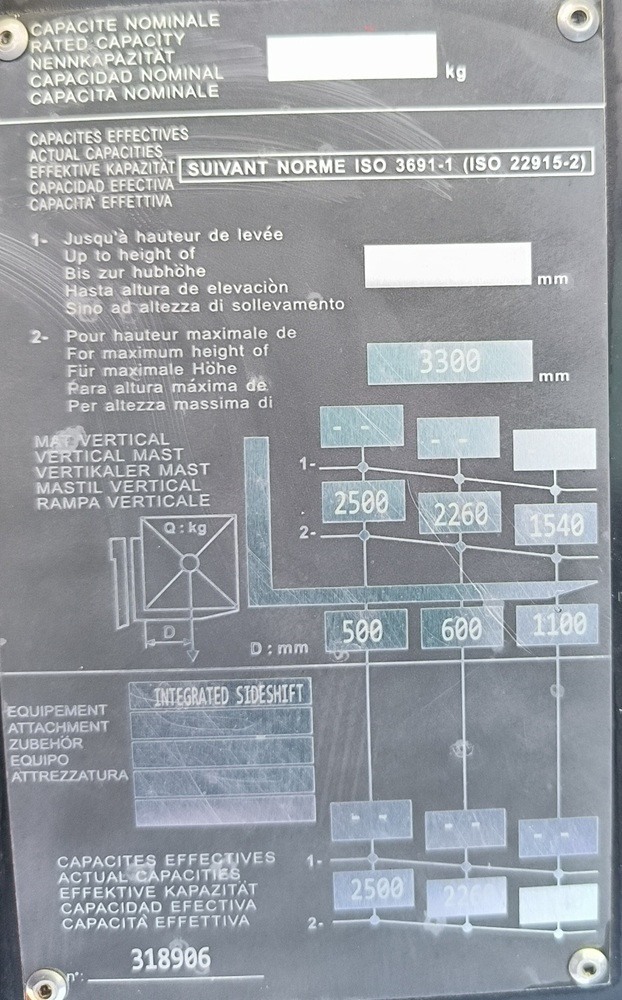 CAPACITE NOMINALE
RATED CAPACITY
NENNKAPAZITÄT
CAPACIDAD NOMINAL
CAPACITA NOMINALE
kg
CAPACITES EFFECTIVES
ACTUAL CAPACITIES
EFFEKTIVE KAPAZITÄT
CAPACIDAD EFECTIVA
CAPACITA' EFFETTIVA
SUIVANT NORME ISO 3691-1 (ISO 22915-2)
1- Jusqu'à hauteur de levée
Up to height of
Bis zur hubhöhe
Hasta altura de elevaciòn
Sino ad altezza di sollevamento
mm
2- Pour hauteur maximale de
For maximum height of
Für maximale Höhe
Para altura máxima de
Per altezza massima di
3300 mm
MAT VERTICAL
VERTICAL MAST
VERTIKALER MAST
MASTIL VERTICAL
RAMPA VERTICALE
- - - -
1-
2500 2260 1540
2-
Q : kg
D
D : mm 500 600 1100
INTEGRATED SIDESHIFT
EQUIPEMENT
ATTACHMENT
ZUBEHÖR
EQUIPO
ATTREZZATURA
- - - - - -
CAPACITES EFFECTIVES
ACTUAL CAPACITIES
EFFEKTIVE KAPAZITÄT
CAPACIDAD EFECTIVA
CAPACITÀ EFFETTIVA
1-
2500 2260
2-
n°: 318906